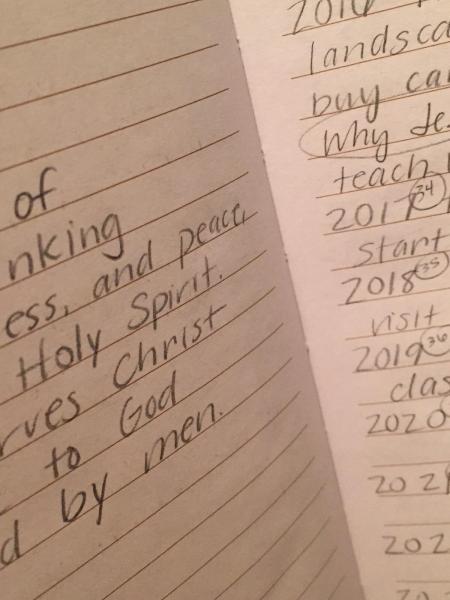 of
nking
ess, and peace,
Holy Spirit.
rves Christ
to God
d by men.
2016
landsca
buy ca
Why Je
teach
2017 34
start
2018 35
visit
2019 36
clas
2020
2021
202
20